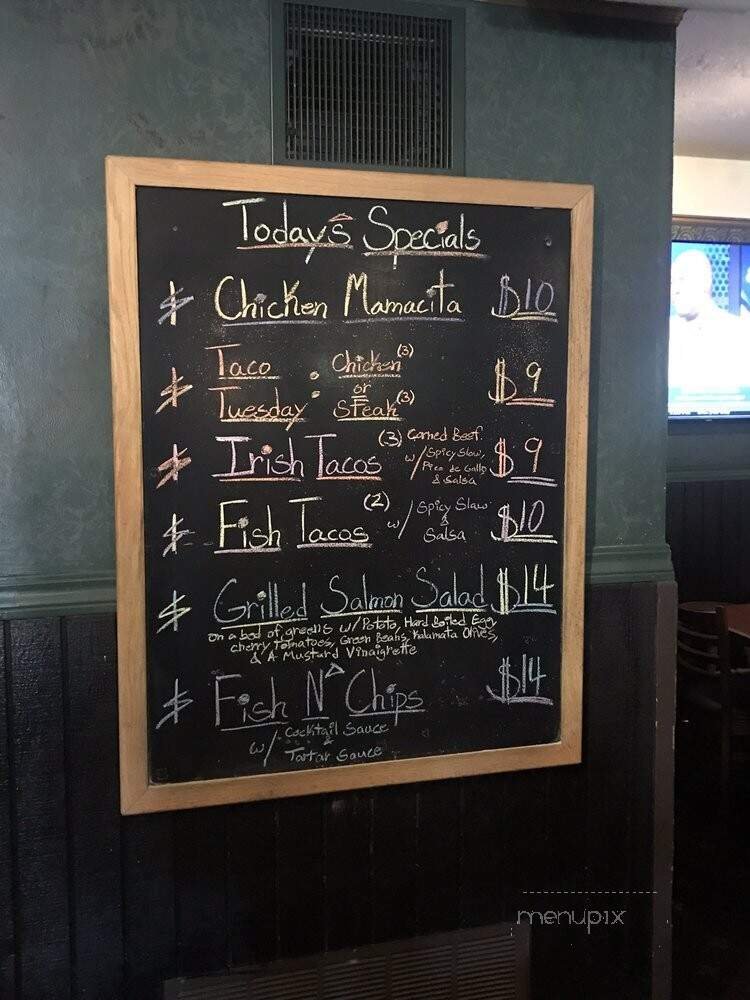 Today's Specials
* Chicken Mamacita $10
* Taco Tuesday: Chicken (3) or Steak (3) $9
* Irish Tacos (3) Corned Beef w/ Spicy Slaw, Pico de Gallo & Salsa $9
* Fish Tacos (2) w/ Spicy Slaw & Salsa $10
* Grilled Salmon Salad $14
on a bed of greens w/ Potato, Hard Boiled Egg,
cherry tomatoes, Green Beans, Kalamata Olives,
& A Mustard Vinaigrette
* Fish N' Chips $14
w/ Cocktail Sauce
& Tartar Sauce
menupix